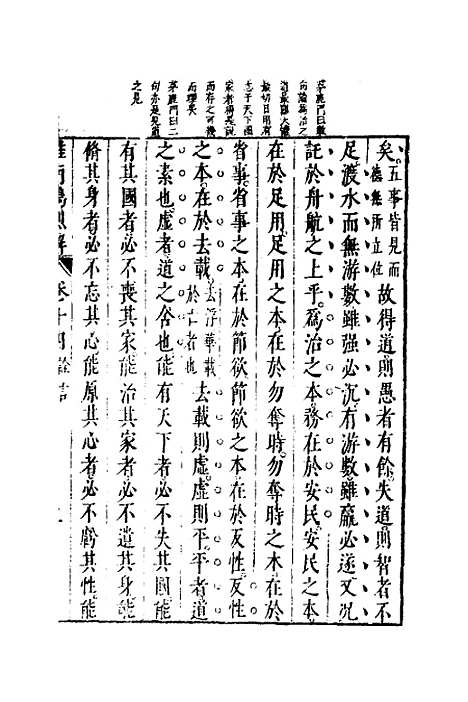 茅鹿門曰數
句論為治之
最切日用有
志于天下國
家者得是說
而存之可幾
而理矣
茅鹿門曰二
句亦是見道
之見
矣五事皆見而德無所立位故得道則愚者有餘失道則智者不
足渡水而無游數雖强必沉有游數雖羸必遂又况
託於舟航之上乎為治之本務在於安民安民之本
在於足用足用之本在於勿奪時勿奪時之本在於
省事省事之本在於節欲節欲之本在於反性反性
之本在於去載去浮華載於亡者也去載則虛虛則平平者道
之素也虛者道之舍也能有天下者必不失其國能
有其國者必不喪其家能治其家者必不遺其身能
脩其身者必不忘其心能原其心者必不虧其性能
淮南鴻烈解 卷十四詮言